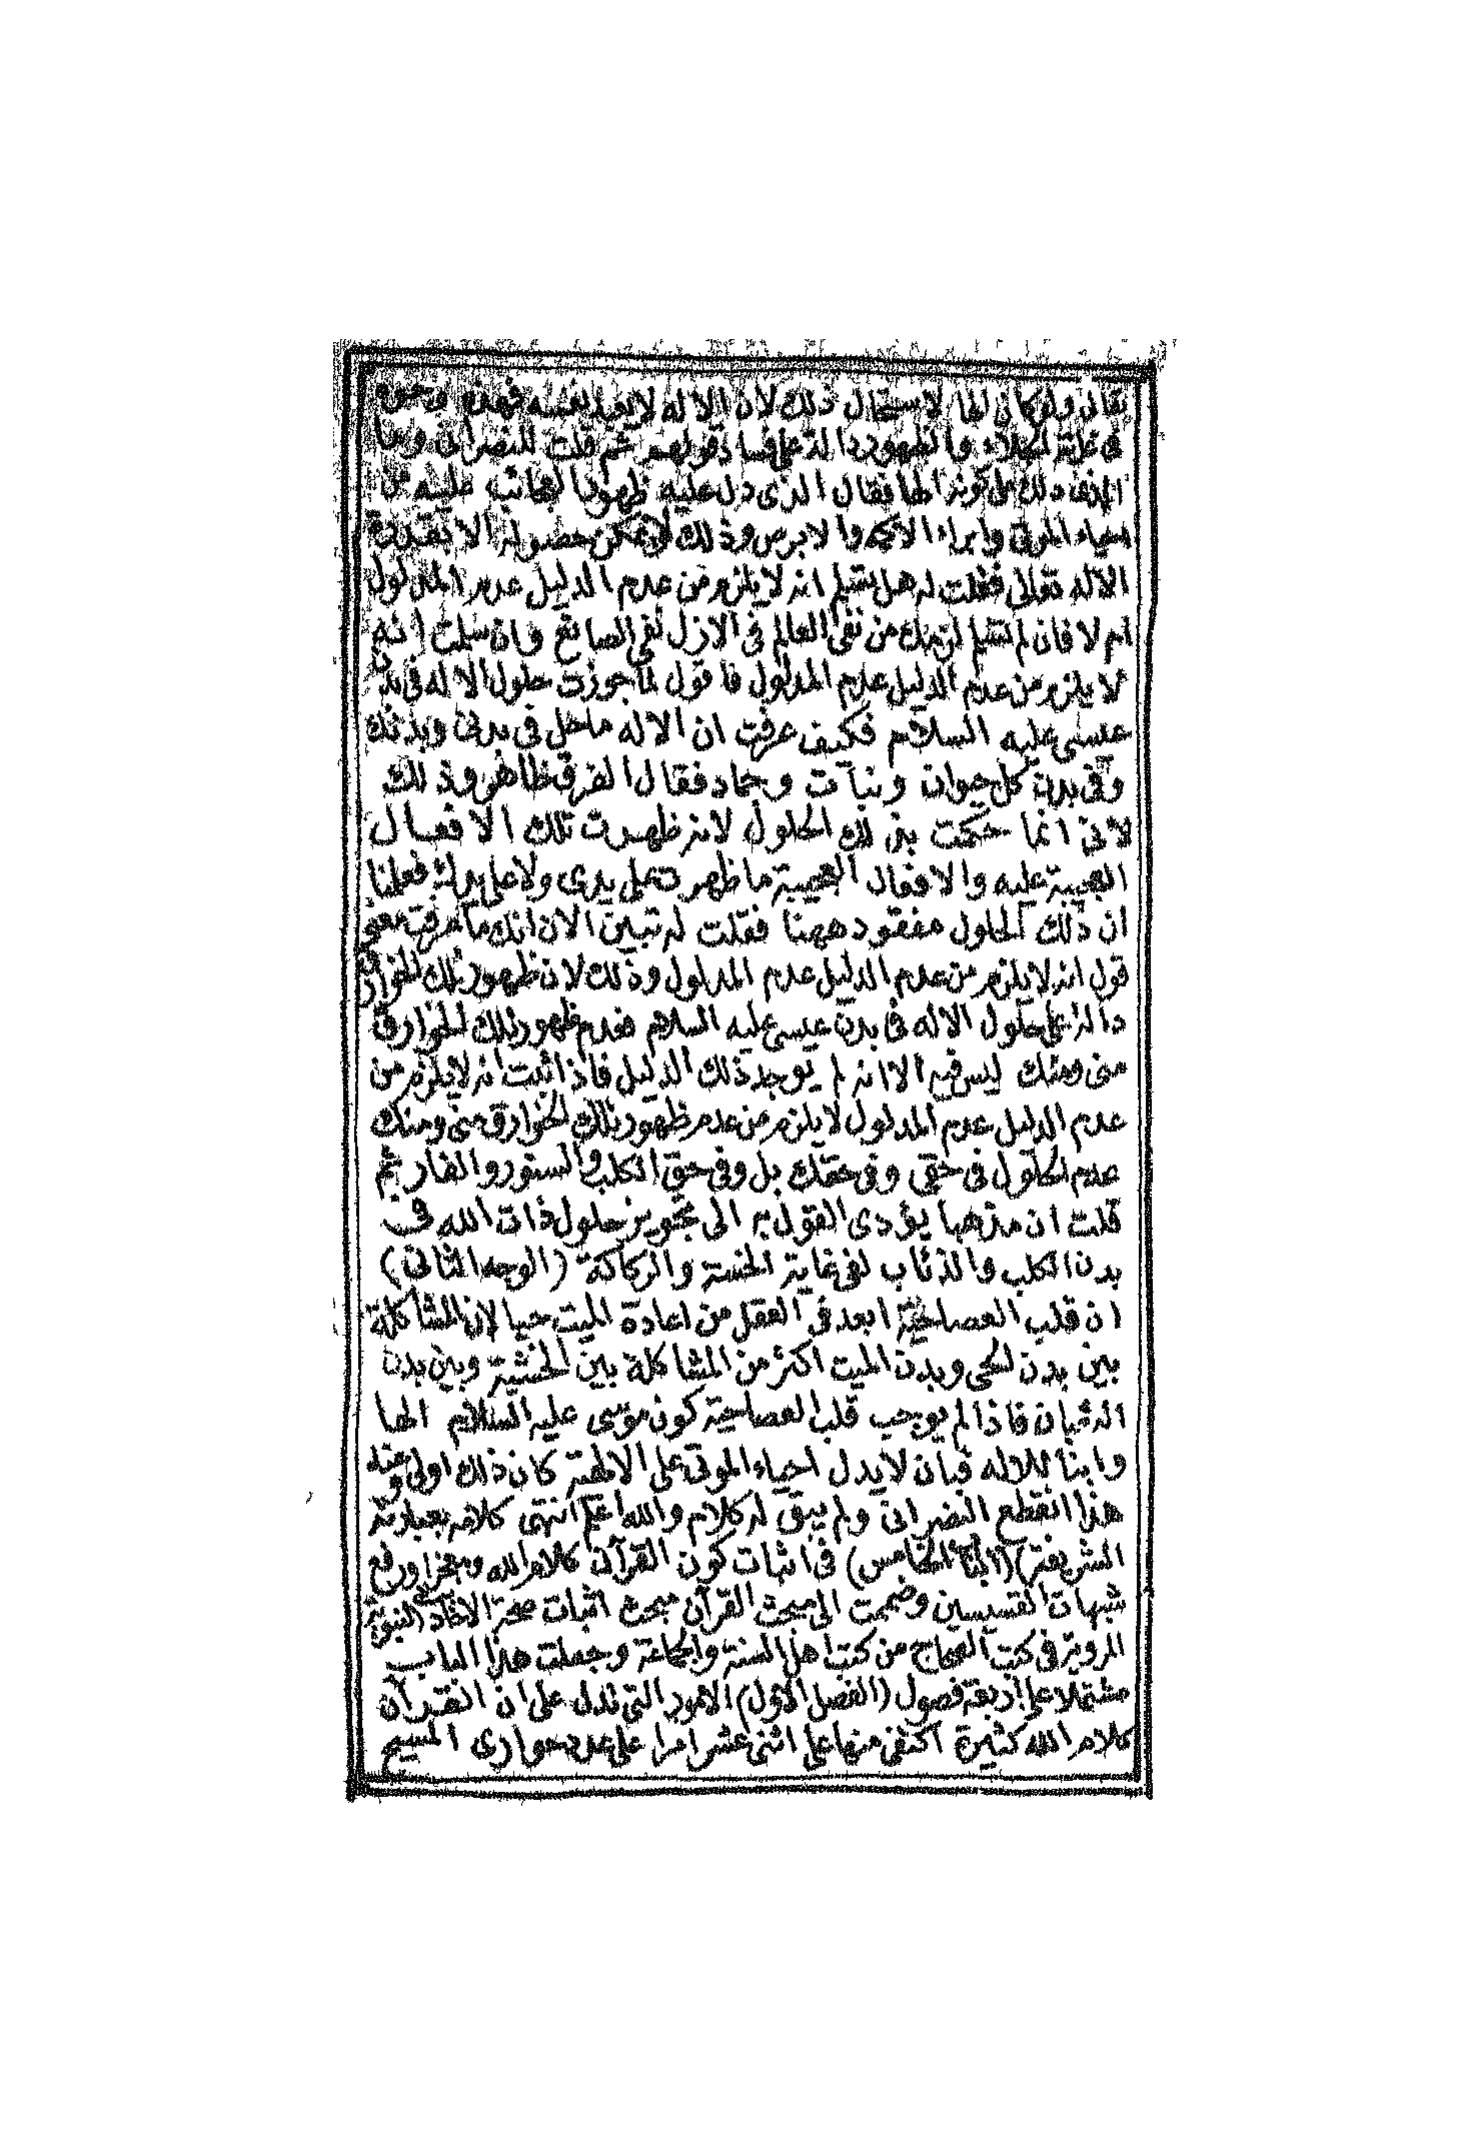 تعالى ولو كان الها لاستحال ذلك لان الاله لا يعبد نفسه فهذه وجوه
فى غاية الجلاء والظهور دالة على فساد قولهم ثم قلت للنصرانى وما
الذى دلك على كونه الها فقال الذى دل عليه ظهور العجائب عليه من
احياء الموتى وابراء الاكمه والابرص وذلك لا يمكن حصوله الا بقدرة
الاله تعالى فقلت له هل تسلم انه لا يلزم من عدم الدليل عدم المدلول
ام لا فان لم تسلم لزمك من نفى العالم فى الازل نفى الصانع وان سلمت انه
لا يلزم من عدم الدليل عدم المدلول فاقول لما جوزت حلول الاله فى بدن
عيسى عليه السلام فكيف عرفت ان الاله ما حل فى بدنى وبدنك
وفى بدن كل حيوان ونبات وجماد فقال الفرق ظاهر وذلك
لانى انما حكمت بذلك الحلول لانه ظهرت تلك الافعال
العجيبة عليه والافعال العجيبة ما ظهرت على يدى ولا على يدك فعلمنا
ان ذلك الحلول مفقود ههنا فقلت له تبين الان انك ما عرفت معنى
قول انه لا يلزم من عدم الدليل عدم المدلول وذلك لان ظهور تلك الخوارق
دالة على حلول الاله فى بدن عيسى عليه السلام فعدم ظهور تلك الخوارق
منى ومنك ليس فيه الا انه لم يوجد ذلك الدليل فاذا ثبت انه لا يلزم من
عدم الدليل عدم المدلول لا يلزم من عدم ظهور تلك الخوارق منى ومنك
عدم الحلول فى حقى وفى حقك بل وفى حق الكلب والسنور والفار ثم
قلت ان مذهبا يؤدى القول به الى تجويز حلول ذات الله فى
بدن الكلب والذئاب لفى غاية الخسة والركاكة (الوجه الثانى)
ان قلب العصا حية ابعد فى العقل من اعادة الميت حيا لان المشاكلة
بين بدن الحى وبدن الميت اكثر من المشاكلة بين الخشبة وبين بدن
الثعبان فاذا لم يوجب قلب العصا حية كون موسى عليه السلام الها
وابنا للاله فبان لا يدل احياء الموتى على الالهية كان ذلك اولى وعند
هذا انقطع النصرانى ولم يبق له كلام والله اعلم انتهى كلامه بعبارته
الشريفة (الباب الخامس) فى اثبات كون القرآن كلام الله ومعجزا ورفع
شبهات القسيسين وضممت الى مبحث القرآن مبحث اثبات صحة الاحاديث النبوية
المروية فى كتب الصحاح من كتب اهل السنة والجماعة وجعلت هذا الباب
مشتملا على اربعة فصول (الفصل الاول) الامور التى تدل على ان القرآن
كلام الله كثيرة اكتفى منها على اثنى عشر امرا على عدد حوارى المسيح